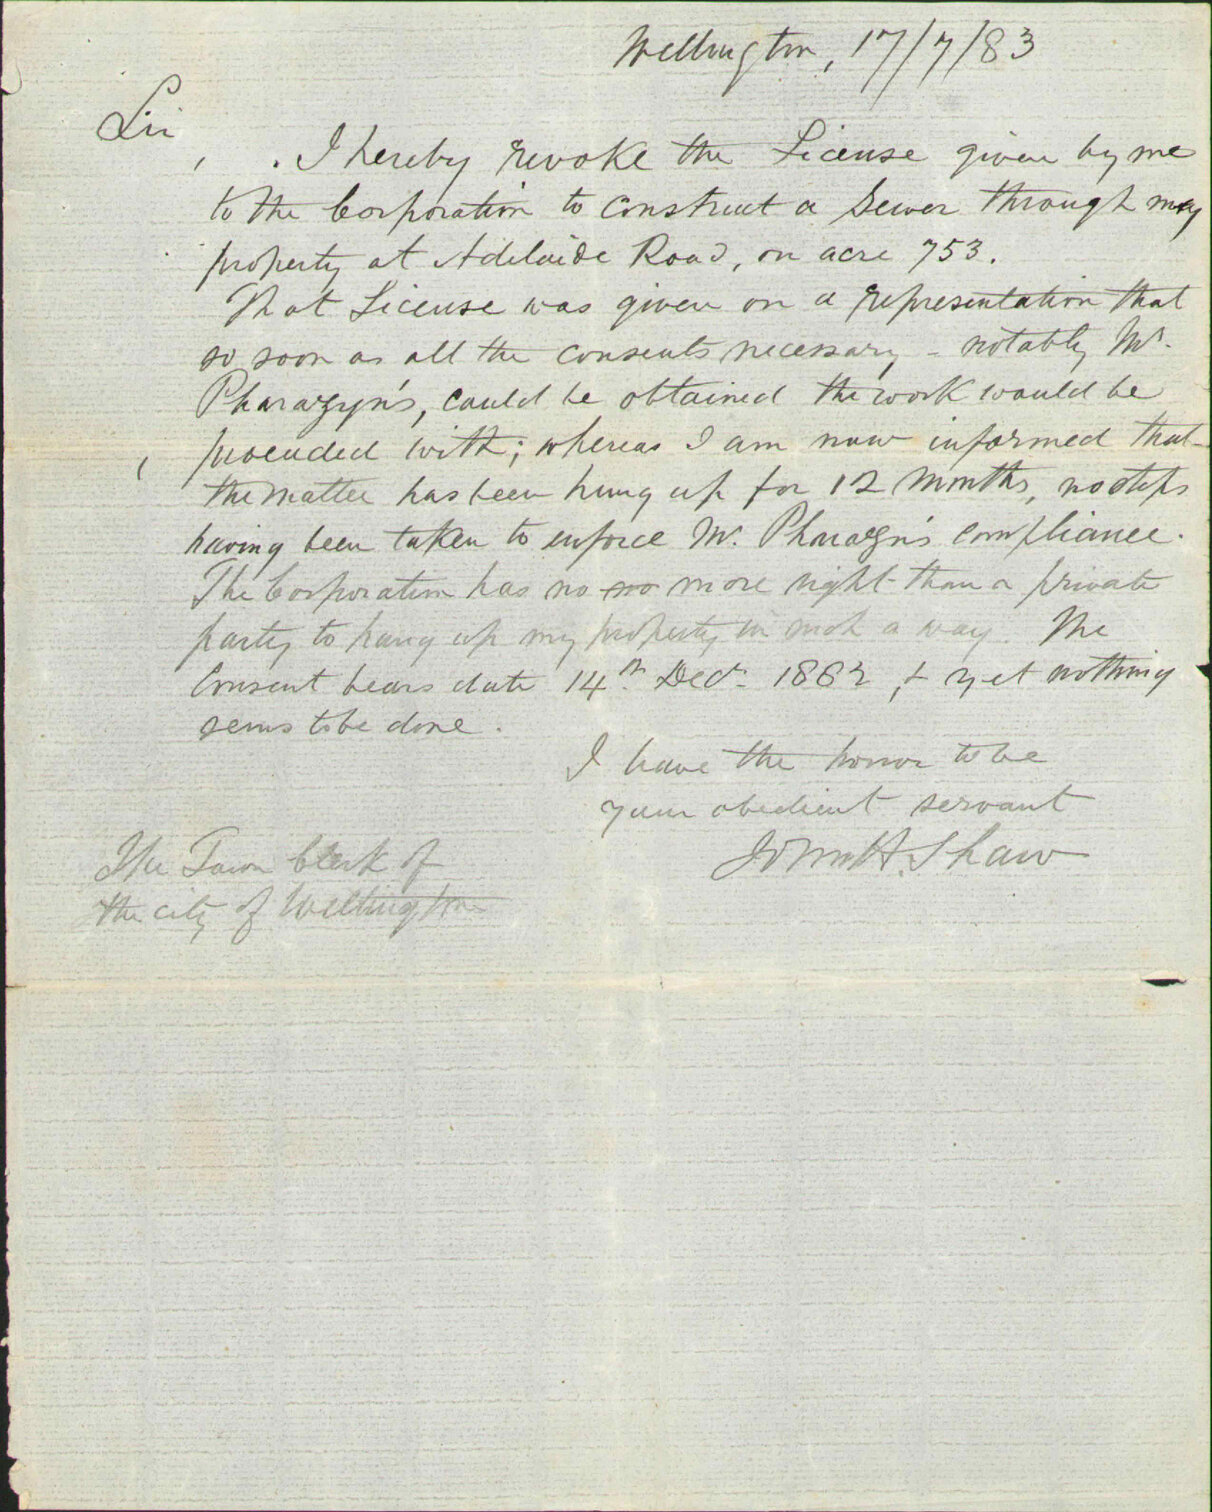 Wellington, 17/7/83
Sir,
I hereby revoke the License given by me
to the Corporation to construct a Sewer through my
property at Adelaide Road, on acre 753.
That License was given on a representation that
so soon as all the consents necessary - notably Mr.
Pharazyn's, could be obtained the work would be
proceeded with; whereas I am now informed that
the matter has been hung up for 12 months, no steps
having been taken to enforce Mr. Pharazyn's compliance.
The Corporation has no no more right than a private
party to hang up my property in such a way. The
Consent bears date 14th Decr 1882, & yet nothing
seems to be done.
I have the honor to be
your obedient servant
John H. Shaw
The Town Clerk of
the city of Wellington